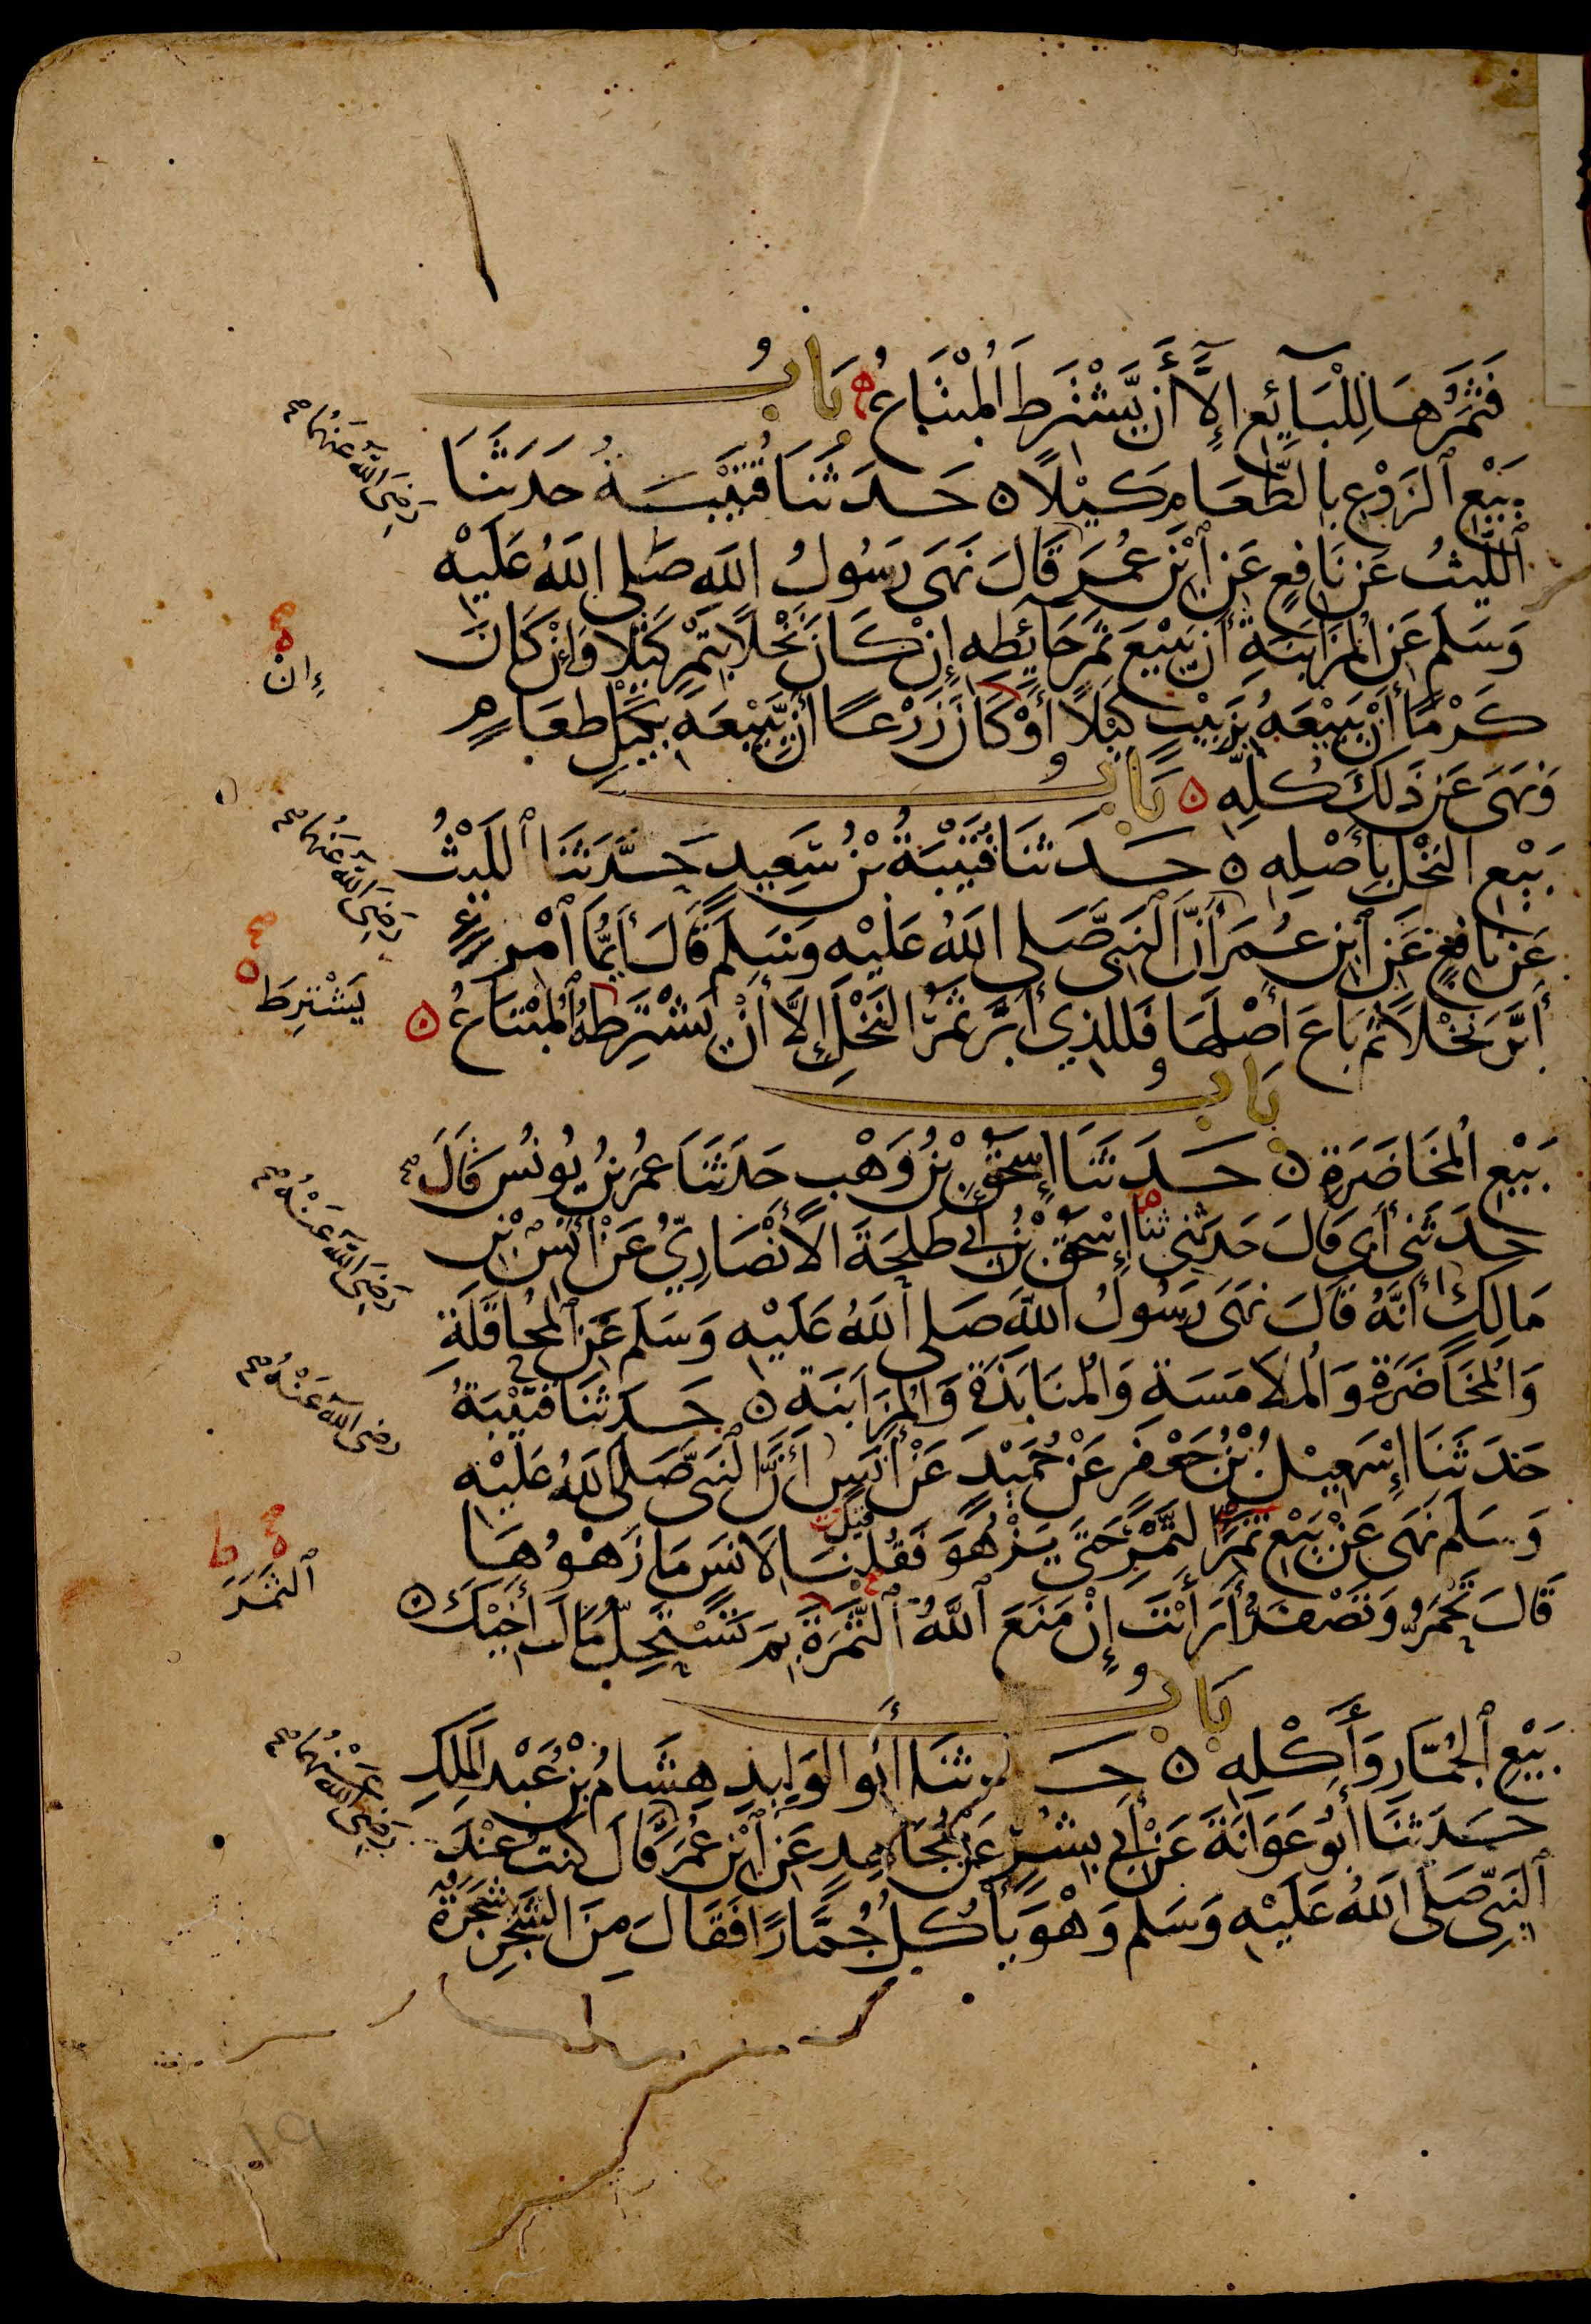 فَثَمَرُهَا لِلْبَائِعِ إِلَّا أَنْ يَشْتَرِطَ الْمُبْتَاعُ ه بَابُ
بَيْعِ الزَّرْعِ بِالطَّعَامِ كَيْلًا ه حَدَّثَنَا قُتَيْبَةُ حَدَّثَنَا
رَضِيَ اللَّهُ عَنْهُمَا صح
اللَّيْثُ عَنْ نَافِعٍ عَنِ ابْنِ عُمَرَ قَالَ نَهَى رَسُولُ اللَّهِ صَلَّى اللَّهُ عَلَيْهِ
وَسَلَّمَ عَنِ الْمُزَابَنَةِ أَنْ يَبِيعَ ثَمَرَ حَائِطِهِ إِنْ كَانَ نَخْلًا بِتَمْرٍ كَيْلًا وَإِنْ كَانَ
إِنْ
كَرْمًا أَنْ يَبِيعَهُ بِزَبِيبٍ كَيْلًا أَوْ كَانَ زَرْعًا أَنْ يَبِيعَهُ بِكَيْلِ طَعَامٍ
وَنَهَى عَنْ ذَلِكَ كُلِّهِ ه بَابُ
بَيْعِ النَّخْلِ بِأَصْلِهِ ه حَدَّثَنَا قُتَيْبَةُ بْنُ سَعِيدٍ حَدَّثَنَا اللَّيْثُ
رَضِيَ اللَّهُ عَنْهُمَا صح
عَنْ نَافِعٍ عَنِ ابْنِ عُمَرَ أَنَّ النَّبِيَّ صَلَّى اللَّهُ عَلَيْهِ وَسَلَّمَ قَالَ أَيُّمَا امْرِئٍ
أَبَّرَ نَخْلًا ثُمَّ بَاعَ أَصْلَهَا فَلِلَّذِي أَبَّرَ ثَمَرُ النَّخْلِ إِلَّا أَنْ يَشْتَرِطَهُ الْمُبْتَاعُ ه
يَشْتَرِطَ
بَابُ
بَيْعِ الْمُخَاضَرَةِ ه حَدَّثَنَا إِسْحَقُ بْنُ وَهْبٍ حَدَّثَنَا عُمَرُ بْنُ يُونُسَ قَالَ صح
حَدَّثَنِي أَبِي قَالَ حَدَّثَنِي ثنا إِسْحَقُ بْنُ أَبِي طَلْحَةَ الْأَنْصَارِيُّ عَنْ أَنَسِ بْنِ
رَضِيَ اللَّهُ عَنْهُ صح
مَالِكٍ أَنَّهُ قَالَ نَهَى رَسُولُ اللَّهِ صَلَّى اللَّهُ عَلَيْهِ وَسَلَّمَ عَنِ الْمُحَاقَلَةِ
وَالْمُخَاضَرَةِ وَالْمُلَامَسَةِ وَالْمُنَابَذَةِ وَالْمُزَابَنَةِ ه حَدَّثَنَا قُتَيْبَةُ
رضي الله عَنْهُ صح
حَدَّثَنَا إِسْمَعِيلُ بْنُ جَعْفَرٍ عَنْ حُمَيْدٍ عَنْ أَنَسٍ أَنَّ النَّبِيَّ صَلَّى اللَّهُ عَلَيْهِ
وَسَلَّمَ نَهَى عَنْ بَيْعِ ثَمَرِ التَّمْرِ حَتَّى يَزْهُوَ فَقُلْنَا لِأَنَسٍ مَا زَهْوُهَا
الثَّمَرَ
قَالَ تَحْمَرُّ وَتَصْفَرُّ أَرَأَيْتَ إِنْ مَنَعَ اللَّهُ الثَّمَرَةَ بِمَ تَسْتَحِلُّ مَالَ أَخِيكَ ه
بَابُ
بَيْعِ الْجُمَّارِ وَأَكْلِهِ ه حَدَّثَنَا أَبُو الْوَلِيدِ هِشَامُ بْنُ عَبْدِ الْمَلِكِ
حَدَّثَنَا أَبُو عَوَانَةَ عَنْ أَبِي بِشْرٍ عَنْ مُجَاهِدٍ عَنِ ابْنِ عُمَرَ قَالَ كُنْتُ عِنْدَ
رَضِيَ اللَّهُ عَنْهُمَا صح
النَّبِيِّ صَلَّى اللَّهُ عَلَيْهِ وَسَلَّمَ وَهْوَ يَأْكُلُ جُمَّارًا فَقَالَ مِنَ الشَّجَرِ شَجَرَةٌ